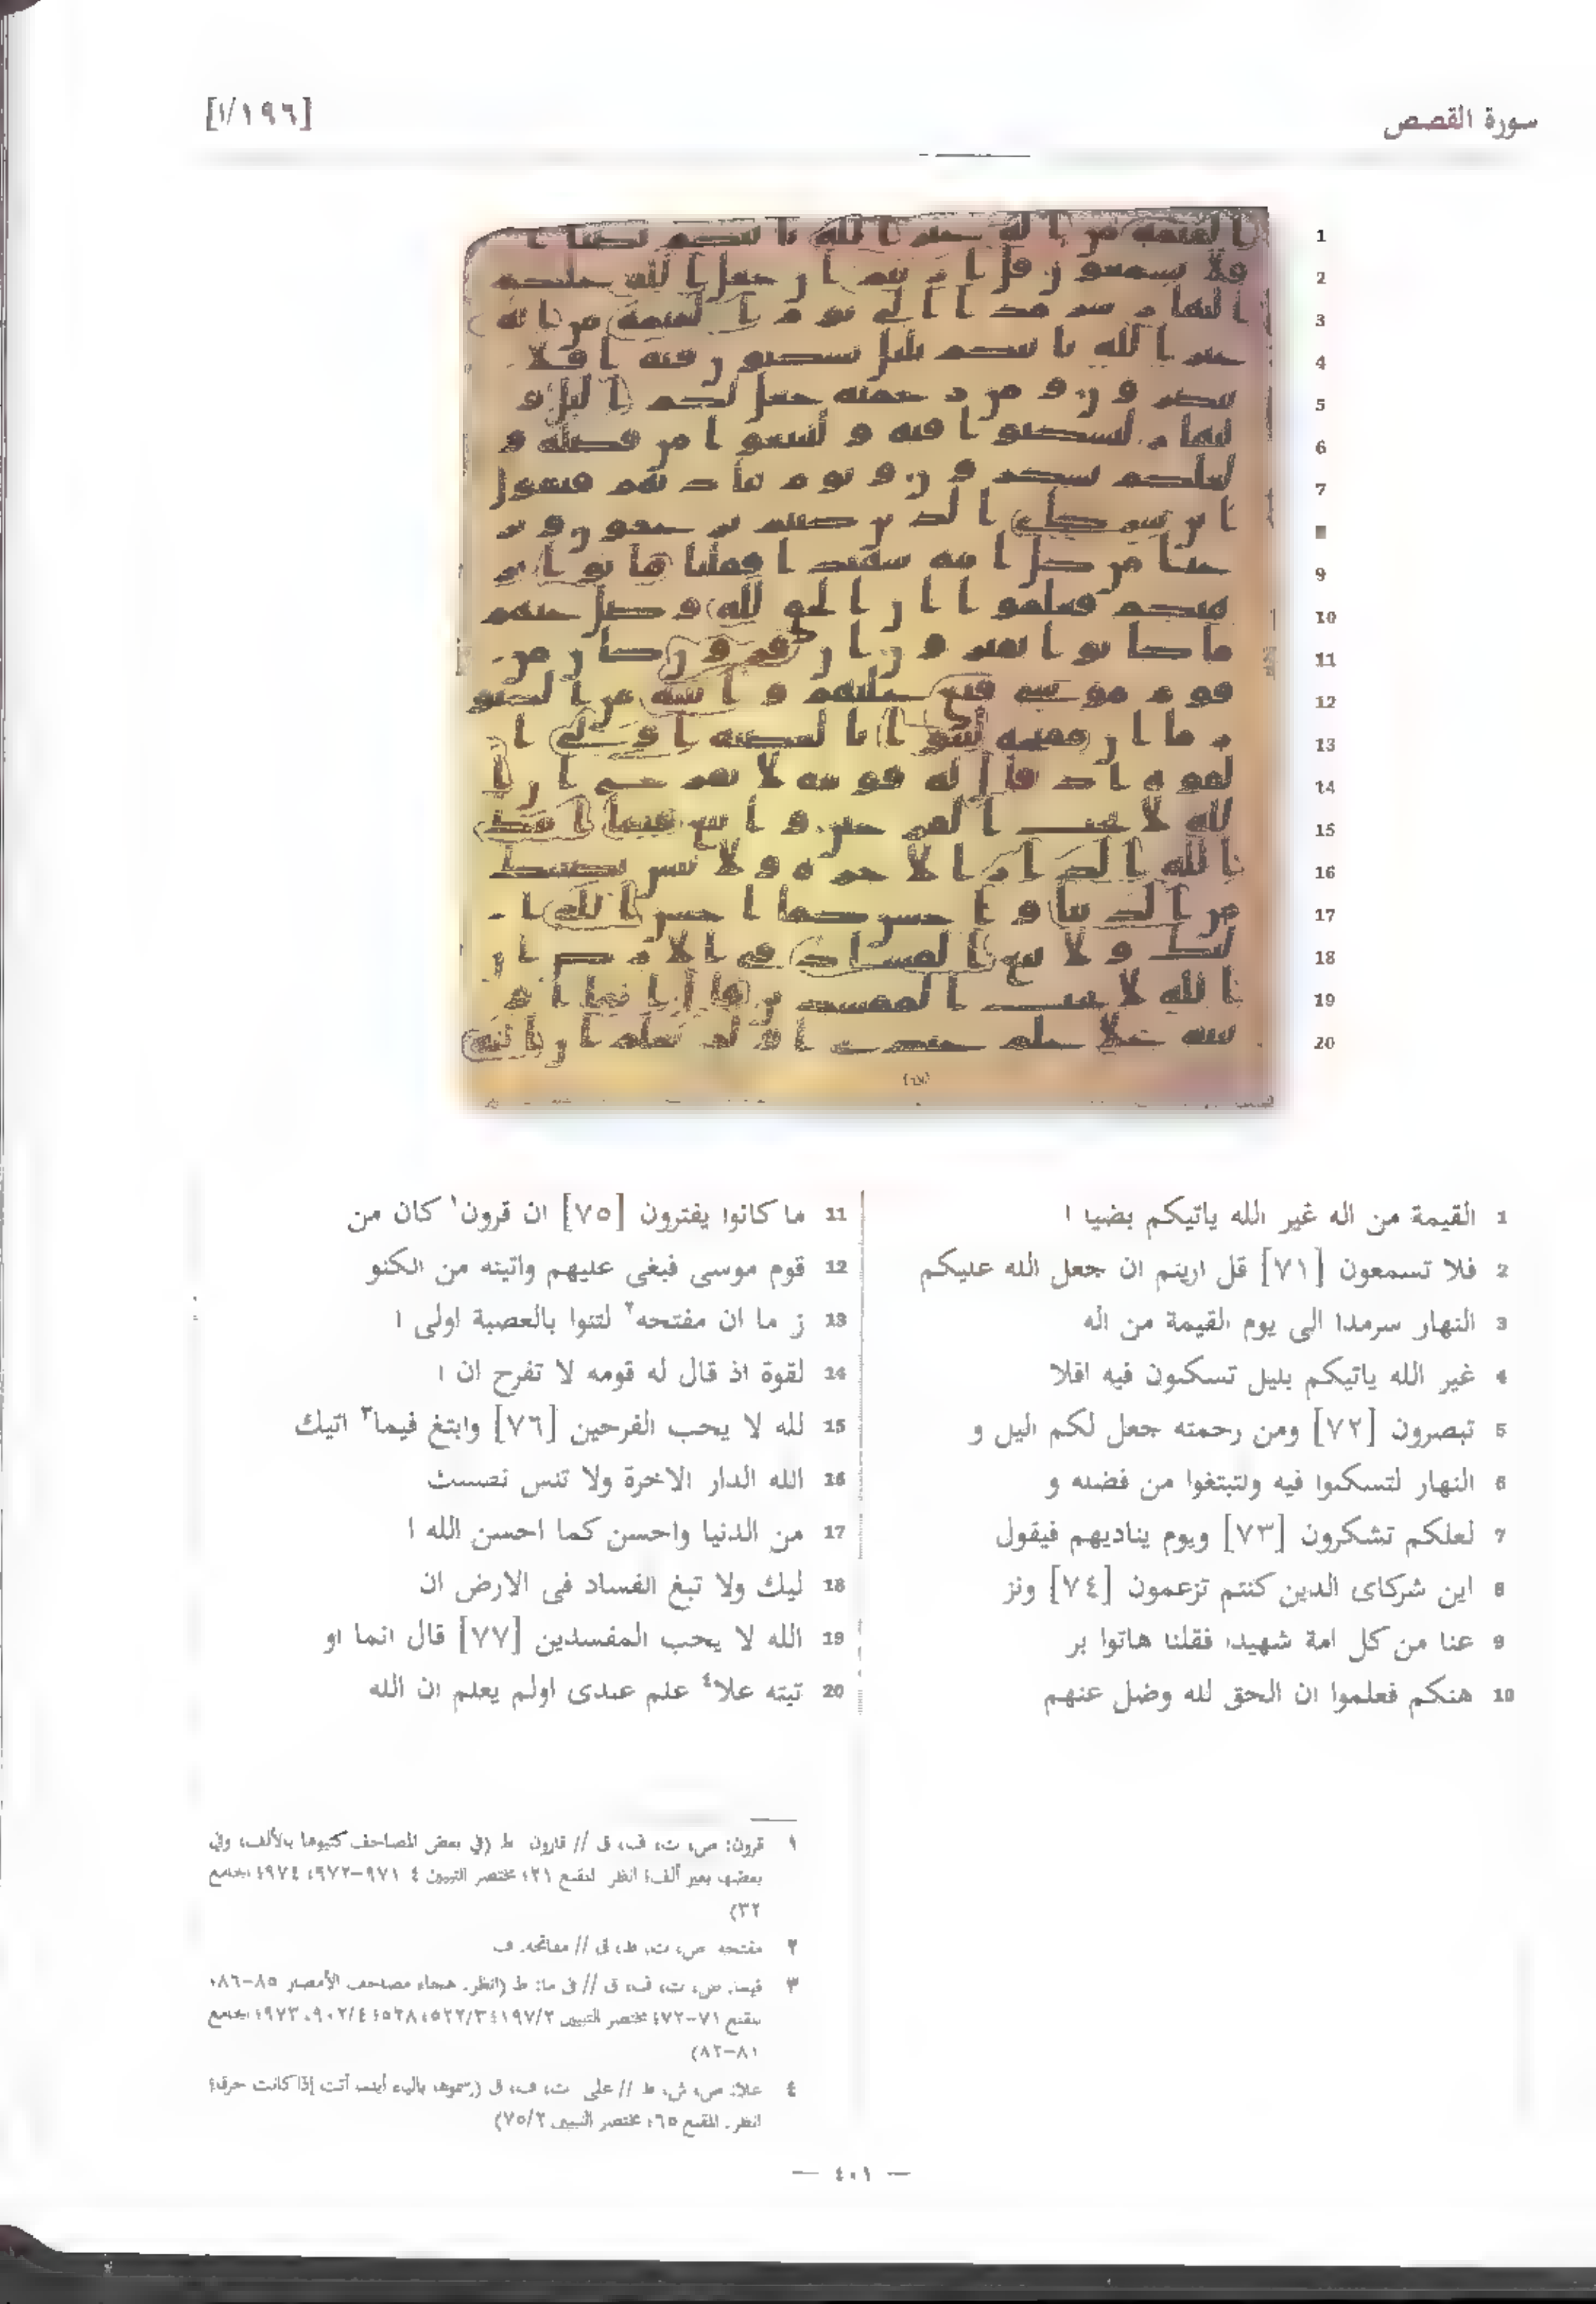 سورة القصص
[١٩٦/ا]
1 القيمة من اله غير الله ياتيكم بضيا ا
2 فلا تسمعون [٧١] قل اريتم ان جعل الله عليكم
3 النهار سرمدا الى يوم القيمة من اله
4 غير الله ياتيكم بليل تسكنون فيه افلا
5 تبصرون [٧٢] ومن رحمته جعل لكم اليل و
6 النهار لتسكنوا فيه ولتبتغوا من فضله و
7 لعلكم تشكرون [٧٣] ويوم يناديهم فيقول
8 اين شركاى الذين كنتم تزعمون [٧٤] ونز
9 عنا من كل امة شهيدا فقلنا هاتوا بر
10 هنكم فعلموا ان الحق لله وضل عنهم
11 ما كانوا يفترون [٧٥] ان قرون١ كان من
12 قوم موسى فبغى عليهم واتينه من الكنو
13 ز ما ان مفتحه٢ لتنوا بالعصبة اولى ا
14 لقوة اذ قال له قومه لا تفرح ان ا
15 لله لا يحب الفرحين [٧٦] وابتغ فيما٣ اتيك
16 الله الدار الاخرة ولا تنس
17 من الدنيا واحسن كما احسن الله ا
18 ليك ولا تبغ الفساد فى الارض ان
19 الله لا يحب المفسدين [٧٧] قال انما او
20 تيته علا٤ علم عندى اولم يعلم ان الله
١ قرون: ص، ت، ف، ق // قارون ط (في بعض المصاحف كتبوها بالألف، وفي
بعضها بغير ألف؛ انظر المقنع ٢١؛ مختصر التبيين ٤ ٩٧١-٩٧٢، ٩٧٤؛ الجامع
٣٢)
٢ مفتحه ص، ت، ط، ق // مفاتحه. ف
٣ فيما. ص، ت، ف، ق // فى ما: ط (انظر. هجاء مصاحف الأمصار ٨٥-٨٦؛
المقنع ٧١-٧٢؛ مختصر التبيين ١٩٧/٢؛ ٥٢٢/٣، ٥٢٨؛ ٩٠٢/٤، ٩٧٣؛ الجامع
٨١-٨٢)
٤ علا: ص، ش، ط // على ت، ف، ق (رسموه بالياء أينما أتت إذا كانت حرفا؛
انظر. المقنع ٦٥؛ مختصر التبيين ٧٥/٢)
— ٤٠١ —